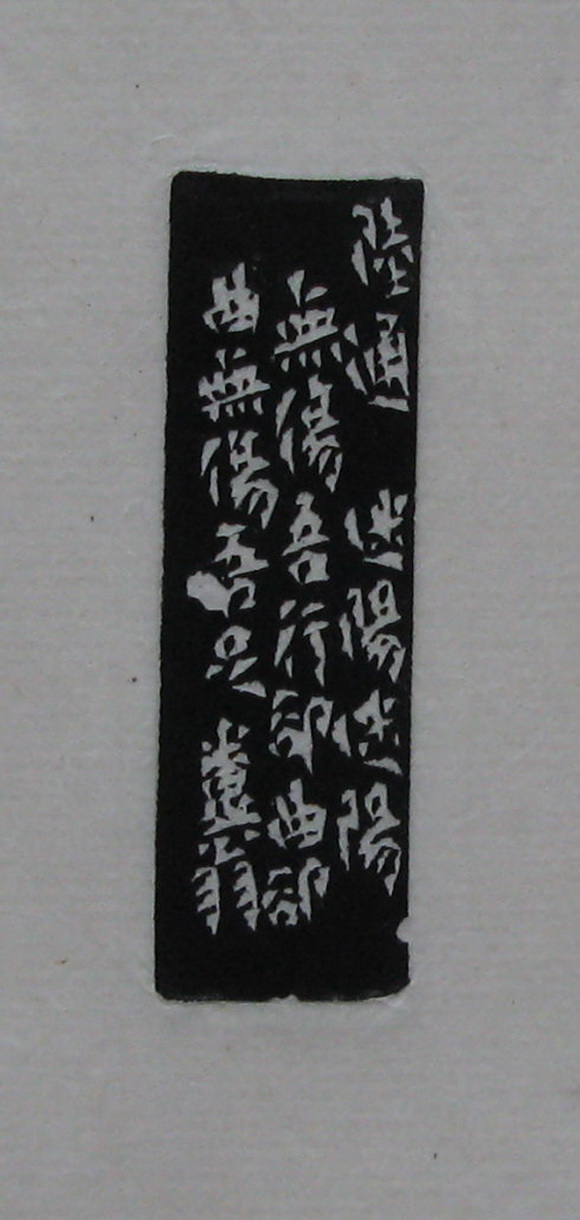 陸通 迷陽迷陽
無傷吾行郤曲郤
曲無傷吾足 翁